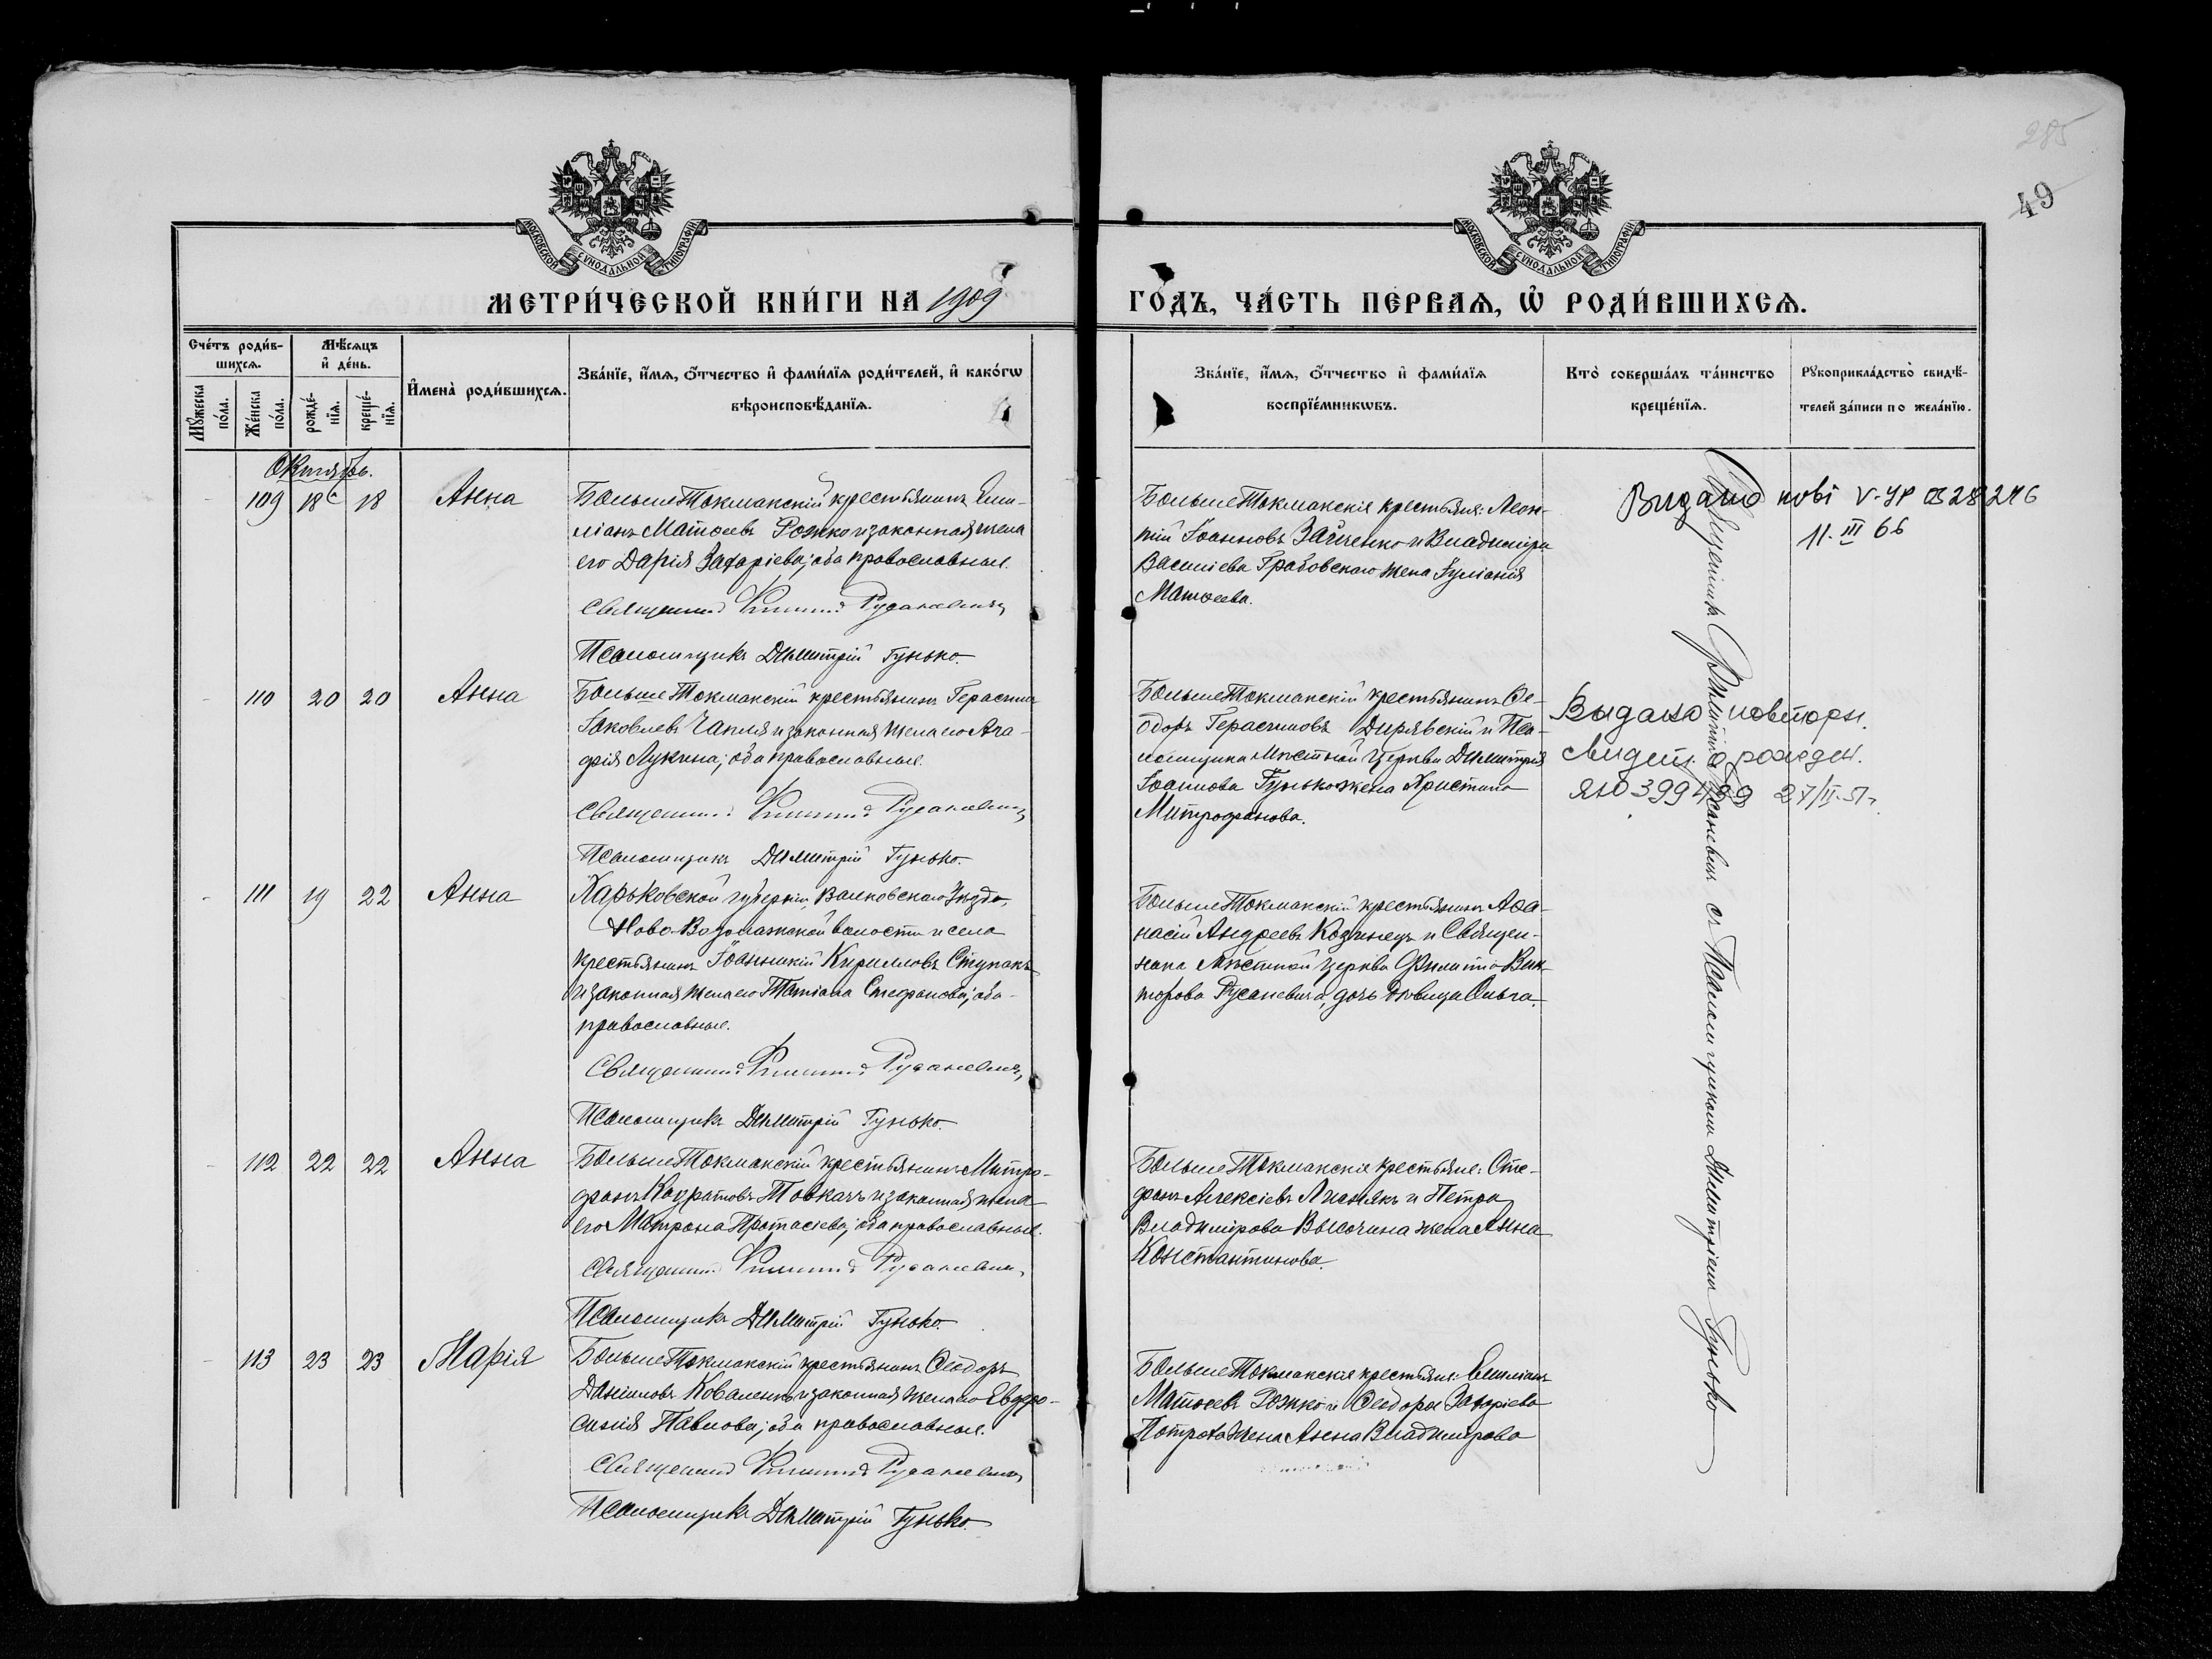 285
49
МОСКОВСКОЙ СѴНОДАЛЬНОЙ ТИПОГРАФІИ
МОСКОВСКОЙ СѴНОДАЛЬНОЙ ТИПОГРАФІИ
МЕТРИ́ЧЕСКОЙ КНИ́ГИ НА 1909
ГО́ДЪ, ЧА́СТЬ ПЕ́РВАЯ, Ѿ РОДИ́ВШИХСЯ.
Сче́тъ роди́в-
шихся.
Мꙋ́жеска
по́ла.
Же́нска
по́ла.
Мѣ́сяцъ
и҆ де́нь.
рожде́-
нїя.
креще́-
нїя.
И҆мена̀ роди́вшихся.
Зва́нїе, и҆́мя, ѻ҆́тчество и҆ фами́лїя роди́телей, и҆ како́гѡ
вѣроисповѣ́данїя.
Зва́нїе, и҆́мя, ѻ҆́тчество и҆ фами́лїя
воспрїе́мникѡвъ.
Кто̀ соверша́лъ та́инство
креще́нїя.
Рꙋкоприкла́дство свидѣ́-
телей за́писи по жела́нїю.
Октябрь.
109 18 18 Анна
БольшеТокмакскій крестьянинъ Еми-
ліанъ Матѳеевъ Рожко и законная жена
его Дарія Захаріева; оба православные.
Священникъ Филиппъ Русаневичъ
Псаломщикъ Димитрій Гунько.
БольшеТокмакскіе крестьяне: Леон-
тій Іоанновъ Зайченко и Владиміра
Василіева Грабовскаго жена Іуліанія
Матѳеева.
Видано нові V-УР 28246
11.III 66
110 20 20 Анна
БольшеТокмакскій крестьянинъ Герасимъ
Іаковлевъ Чапля и законная жена его Ага-
фія Лукина; оба православные.
Священникъ Филиппъ Русаневичъ
Псаломщикъ Димитрій Гунько.
БольшеТокмакскій крестьянинъ Ѳе-
одоръ Герасимовъ Дирявскій и Пса-
ломщика мѣстной церкви Димитрія
Іоаннова Гунько жена Христина
Митрофанова.
Выдано повторн.
свидет. о рожден.
ЯЮ 399499 27/II-51г.
111 19 22 Анна
Харьковской губерніи, Валковскаго Уѣзда,
Ново-Водолажской волости и села
крестьянинъ Іоанникій Кирилловъ Ступакъ
и законная жена его Татіана Стефанова; оба
православные.
Священникъ Филиппъ Русаневичъ
Псаломщикъ Димитрій Гунько.
БольшеТокмакскій крестьянинъ Аѳа-
насій Андреевъ Козинецъ и Священ-
ника мѣстной церкви Филиппа Вик-
торова Русаневича, дочь дѣвица Ольга.
112 22 22 Анна
БольшеТокмакскій крестьянинъ Митро-
фанъ Кодратовъ Товкачъ и законная жена
его Матрона Протасіева; оба православные.
Священникъ Филиппъ Русаневичъ
Псаломщикъ Димитрій Гунько.
БольшеТокмакскіе крестьяне: Сте-
фанъ Алексіевъ Лиснякъ и Петра
Владимірова Высочина жена Анна
Константинова.
113 23 23 Марія
БольшеТокмакскій крестьянинъ Ѳеодоръ
Даніиловъ Коваленко и законная жена его Евфро-
синія Павлова; оба православные.
Священникъ Филиппъ Русаневичъ
Псаломщикъ Димитрій Гунько.
БольшеТокмакскіе крестьяне: Емиліанъ
Матѳеевъ Рожко и Ѳеодора Захаріева
жена Анна Владимірова
Священникъ Филиппъ Русаневичъ съ Псаломщикомъ Димитріемъ Гунько